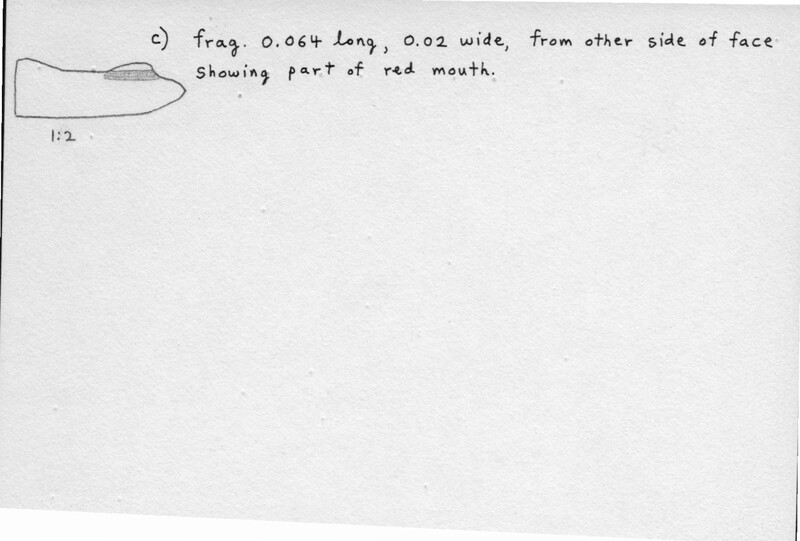 c) frag. 0.064 long, 0.02 wide, from other side of face
showing part of red mouth.
1:2